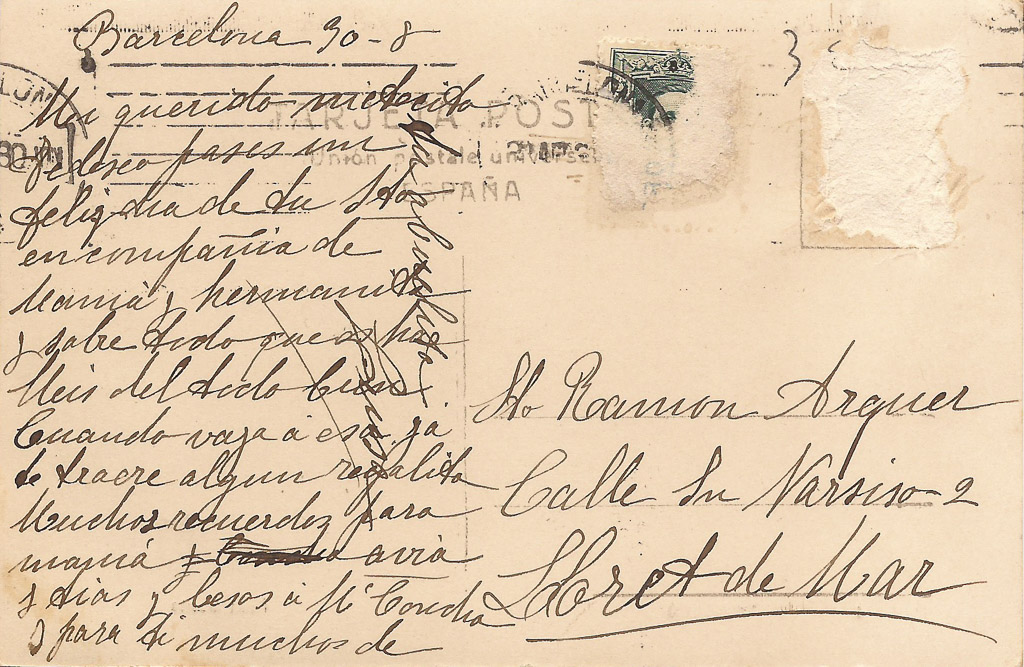 Barcelona 30-8
Mi querido nietecito
Te deseo pases un
feliz dia de tu Sto
en compañia de
Mamá y hermanito
y sobre todo que os ha
lleis del todo bien
Cuando vaya a esa ya
te traere algun regalito
Muchos recuerdos para
mamá avia
y tias y besos a Mª Concha
y para ti muchos de
tu abuelita
TARJETA POST
Unión postale universel
ESPAÑA
3
Sto Ramon Arquer
Calle Sn Narsiso 2
Lloret de Mar